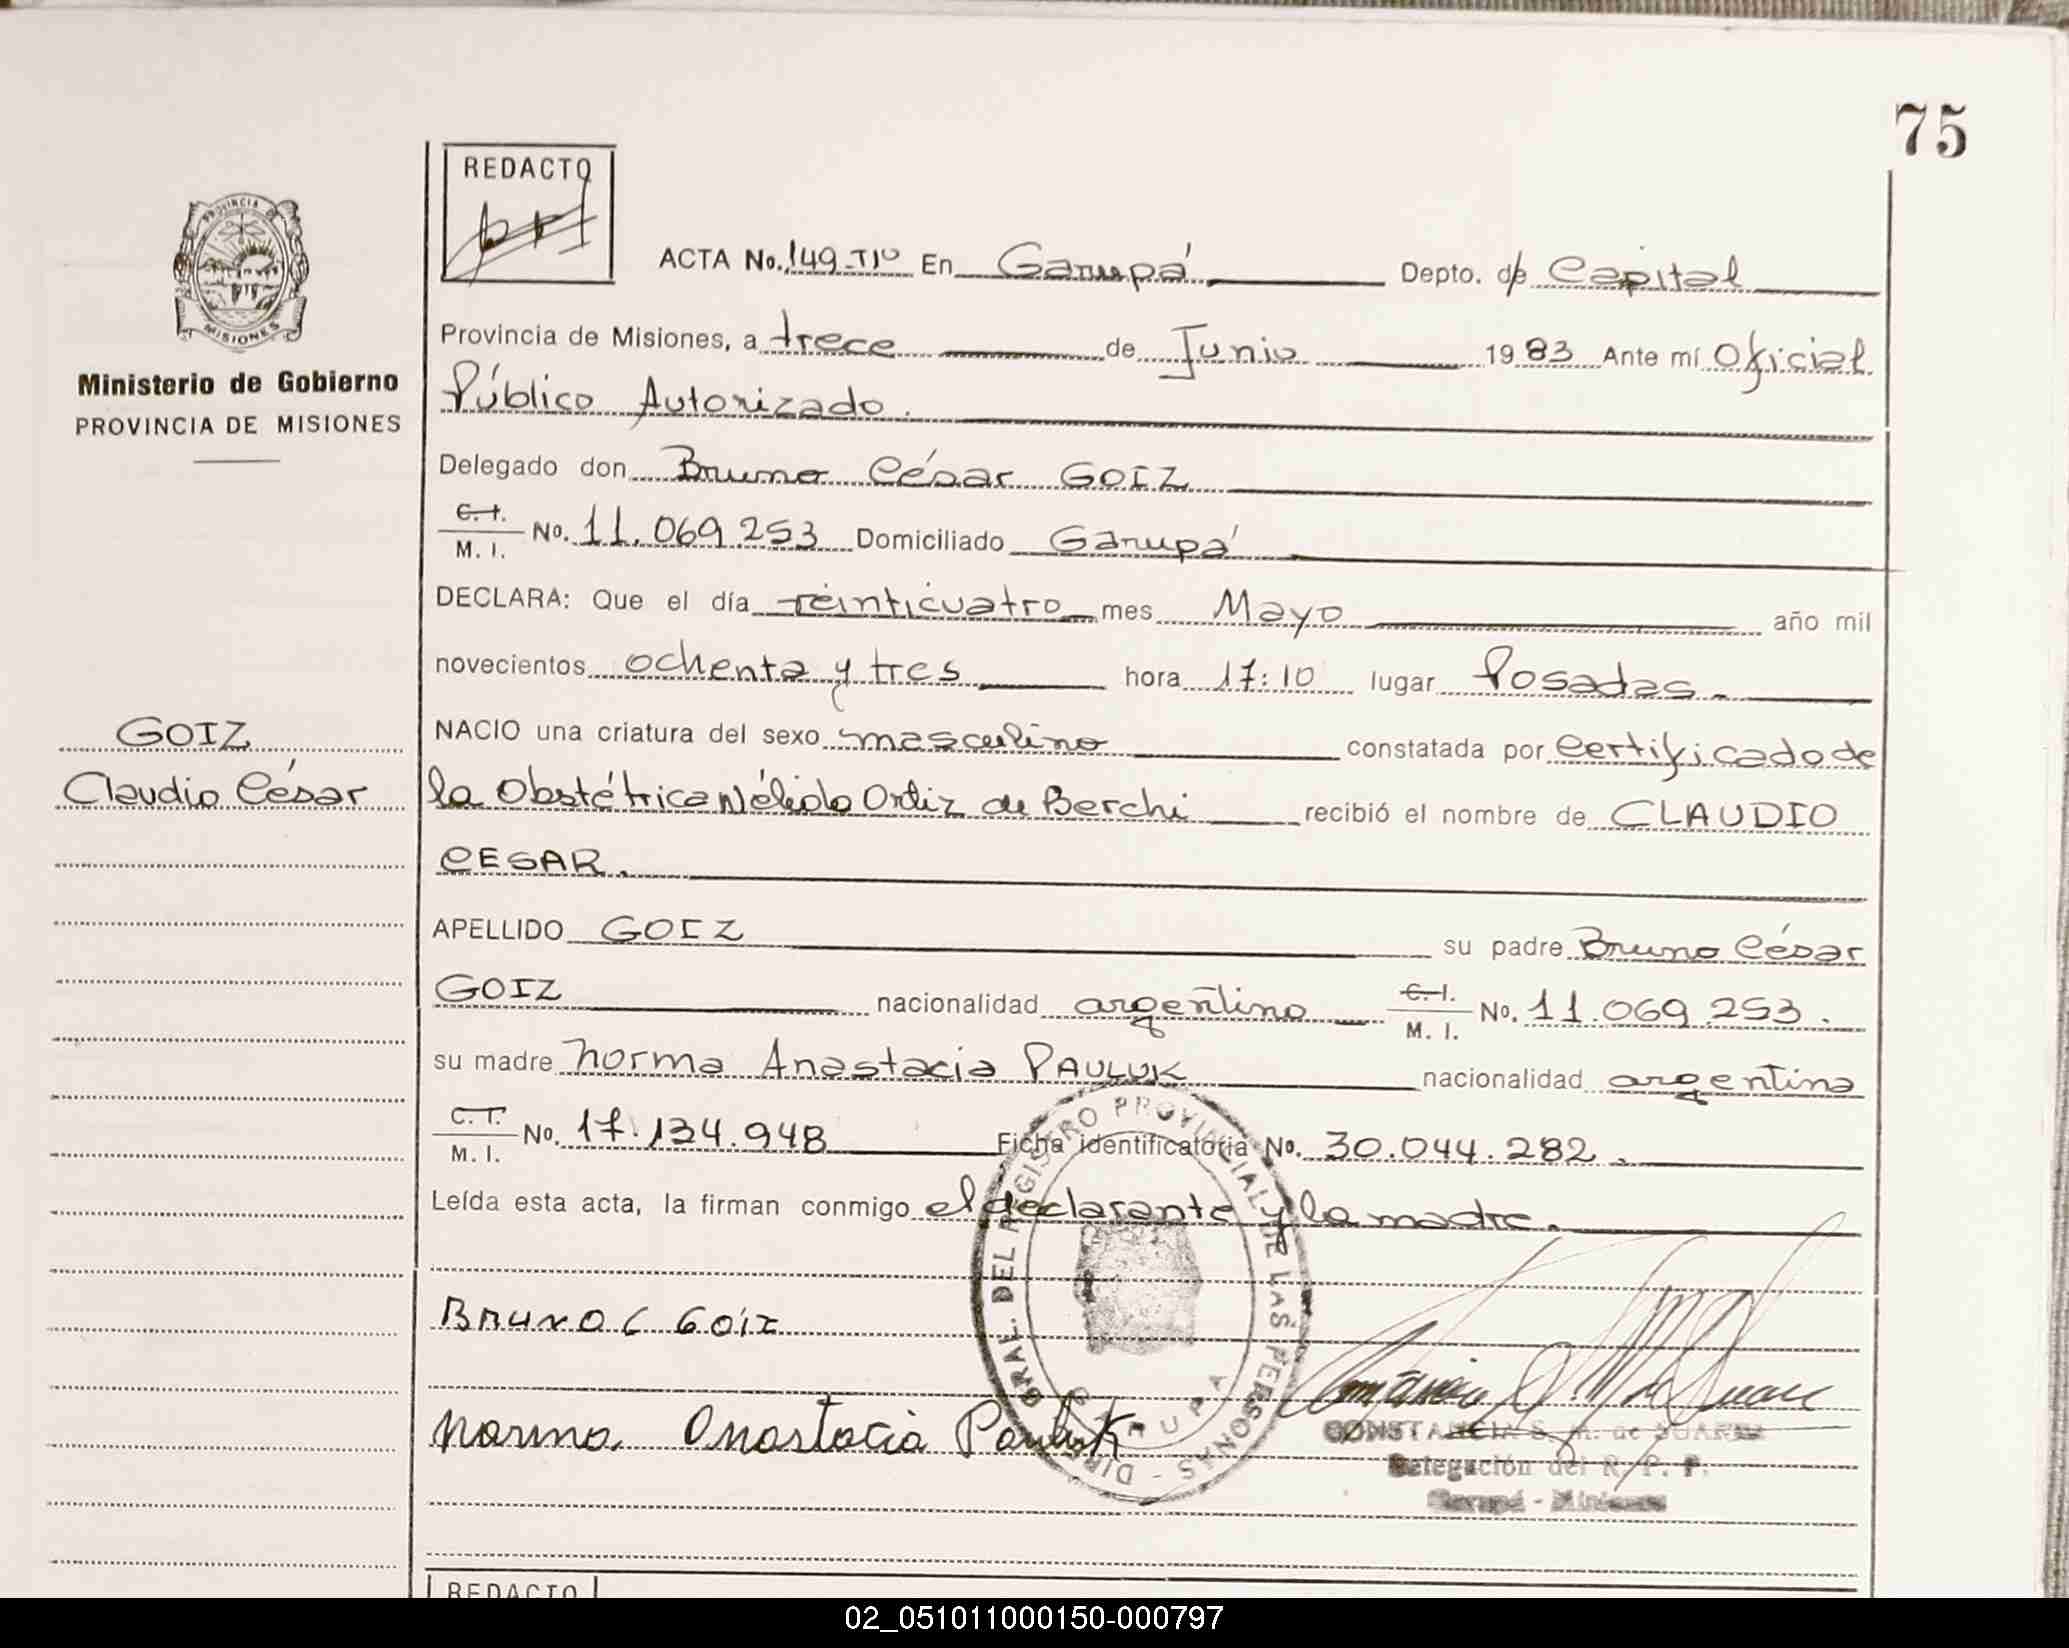 75
REDACTO
PROVINCIA DE
MISIONES
ACTA No. 149-Tº En Garupá Depto. de Capital
Provincia de Misiones, a trece de Junio 1983 Ante mí Oficial
Ministerio de Gobierno
PROVINCIA DE MISIONES
Público Autorizado.
Delegado don Bruno César GOIZ
C.I. M. I. No. 11.069.253 Domiciliado Garupá
DECLARA: Que el día veinticuatro mes Mayo año mil
novecientos ochenta y tres hora 17:10 lugar Posadas.
GOIZ
Claudio César
NACIO una criatura del sexo masculino constatada por certificado de
la Obstétrica Nélida Ortiz de Berchi recibió el nombre de CLAUDIO
CESAR.
APELLIDO GOIZ su padre Bruno César
GOIZ nacionalidad argentino C.I. M. I. No. 11.069.253.
su madre Norma Anastacia PAULUK nacionalidad argentina
C.I. M. I. No. 17.134.948 Ficha identificatoria No. 30.044.282.
Leída esta acta, la firman conmigo el declarante y la madre.
DIREC. GRAL. DEL REGISTRO PROVINCIAL DE LAS PERSONAS -
GARUPA
Bruno C Goiz
Norma Anastacia Pauluk
CONSTANCIA S. M. de SUAREZ
Delegación del R. P. P.
Garupá - Misiones
REDACTO
02_051011000150-000797